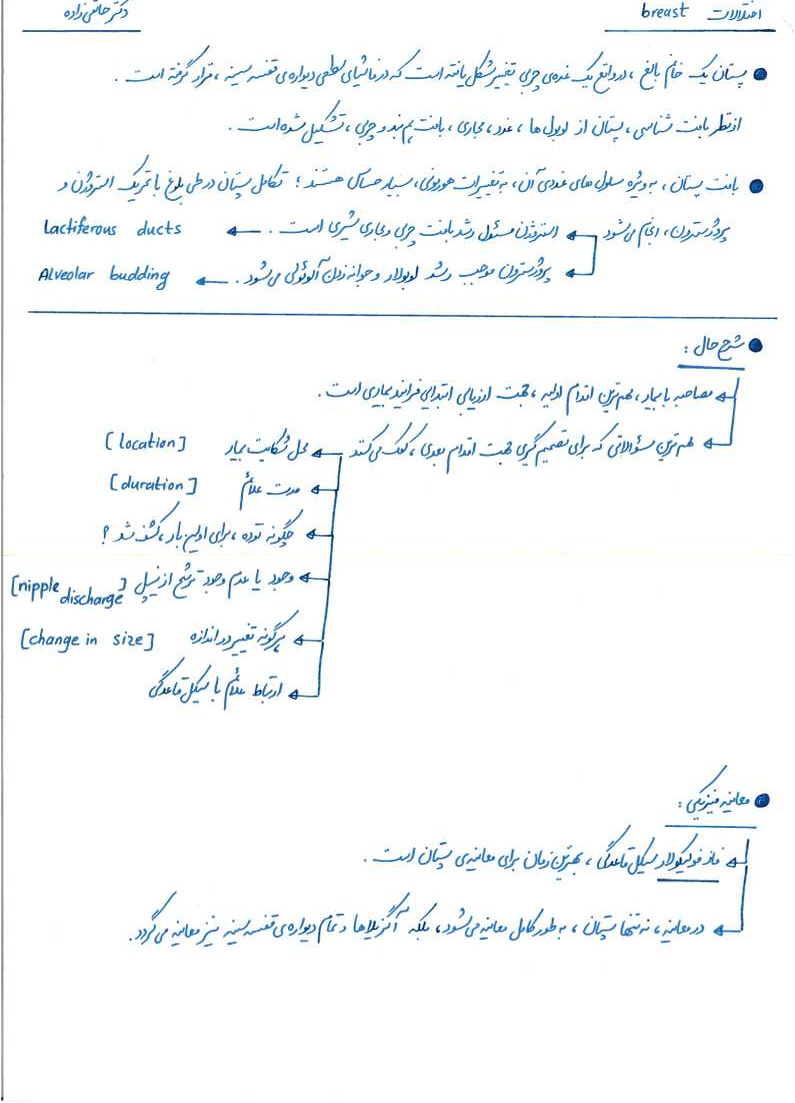 اختلالات breast
دکتر خالقی زاده
پستان یک خانم بالغ، در واقع یک غده‌ی چربی تغییر شکل یافته است که در فاشیای سطحی دیواره‌ی قفسه سینه، قرار گرفته است.
از نظر بافت شناسی، پستان از لوبول ها، غدد، مجاری، بافت همبند و چربی، تشکیل شده است.
بافت پستان، به ویژه سلول های غددی آن، به تغییرات هورمونی، بسیار حساس هستند؛ تکامل پستان در طی بلوغ با تحریک استروژن و
پروژسترون، انجام می‌شود استروژن مسئول رشد بافت چربی و مجاری شیری است. Lactiferous ducts
پروژسترون موجب رشد لوبولار و جوانه زدن آلوئولی می‌شود. Alveolar budding
شرح حال:
مصاحبه با بیمار، مهم‌ترین اقدام اولیه، جهت ارزیابی ابتدایی فرایند بیماری است.
مهم‌ترین سؤالاتی که برای تصمیم گیری جهت اقدام بعدی، کمک می‌کنند محل شکایت بیمار [location]
مدت علائم [duration]
چگونه توده، برای اولین بار، کشف شد؟
وجود یا عدم وجود ترشح از نیپل [nipple discharge]
هرگونه تغییر در اندازه [change in size]
ارتباط علائم با سیکل قاعدگی
معاینه فیزیکی:
فاز فولیکولار سیکل قاعدگی، بهترین زمان برای معاینه‌ی پستان است.
در معاینه، نه تنها پستان، به طور کامل معاینه می‌شود، بلکه آگزیلاها و تمام دیواره‌ی قفسه سینه نیز معاینه می‌گردد.